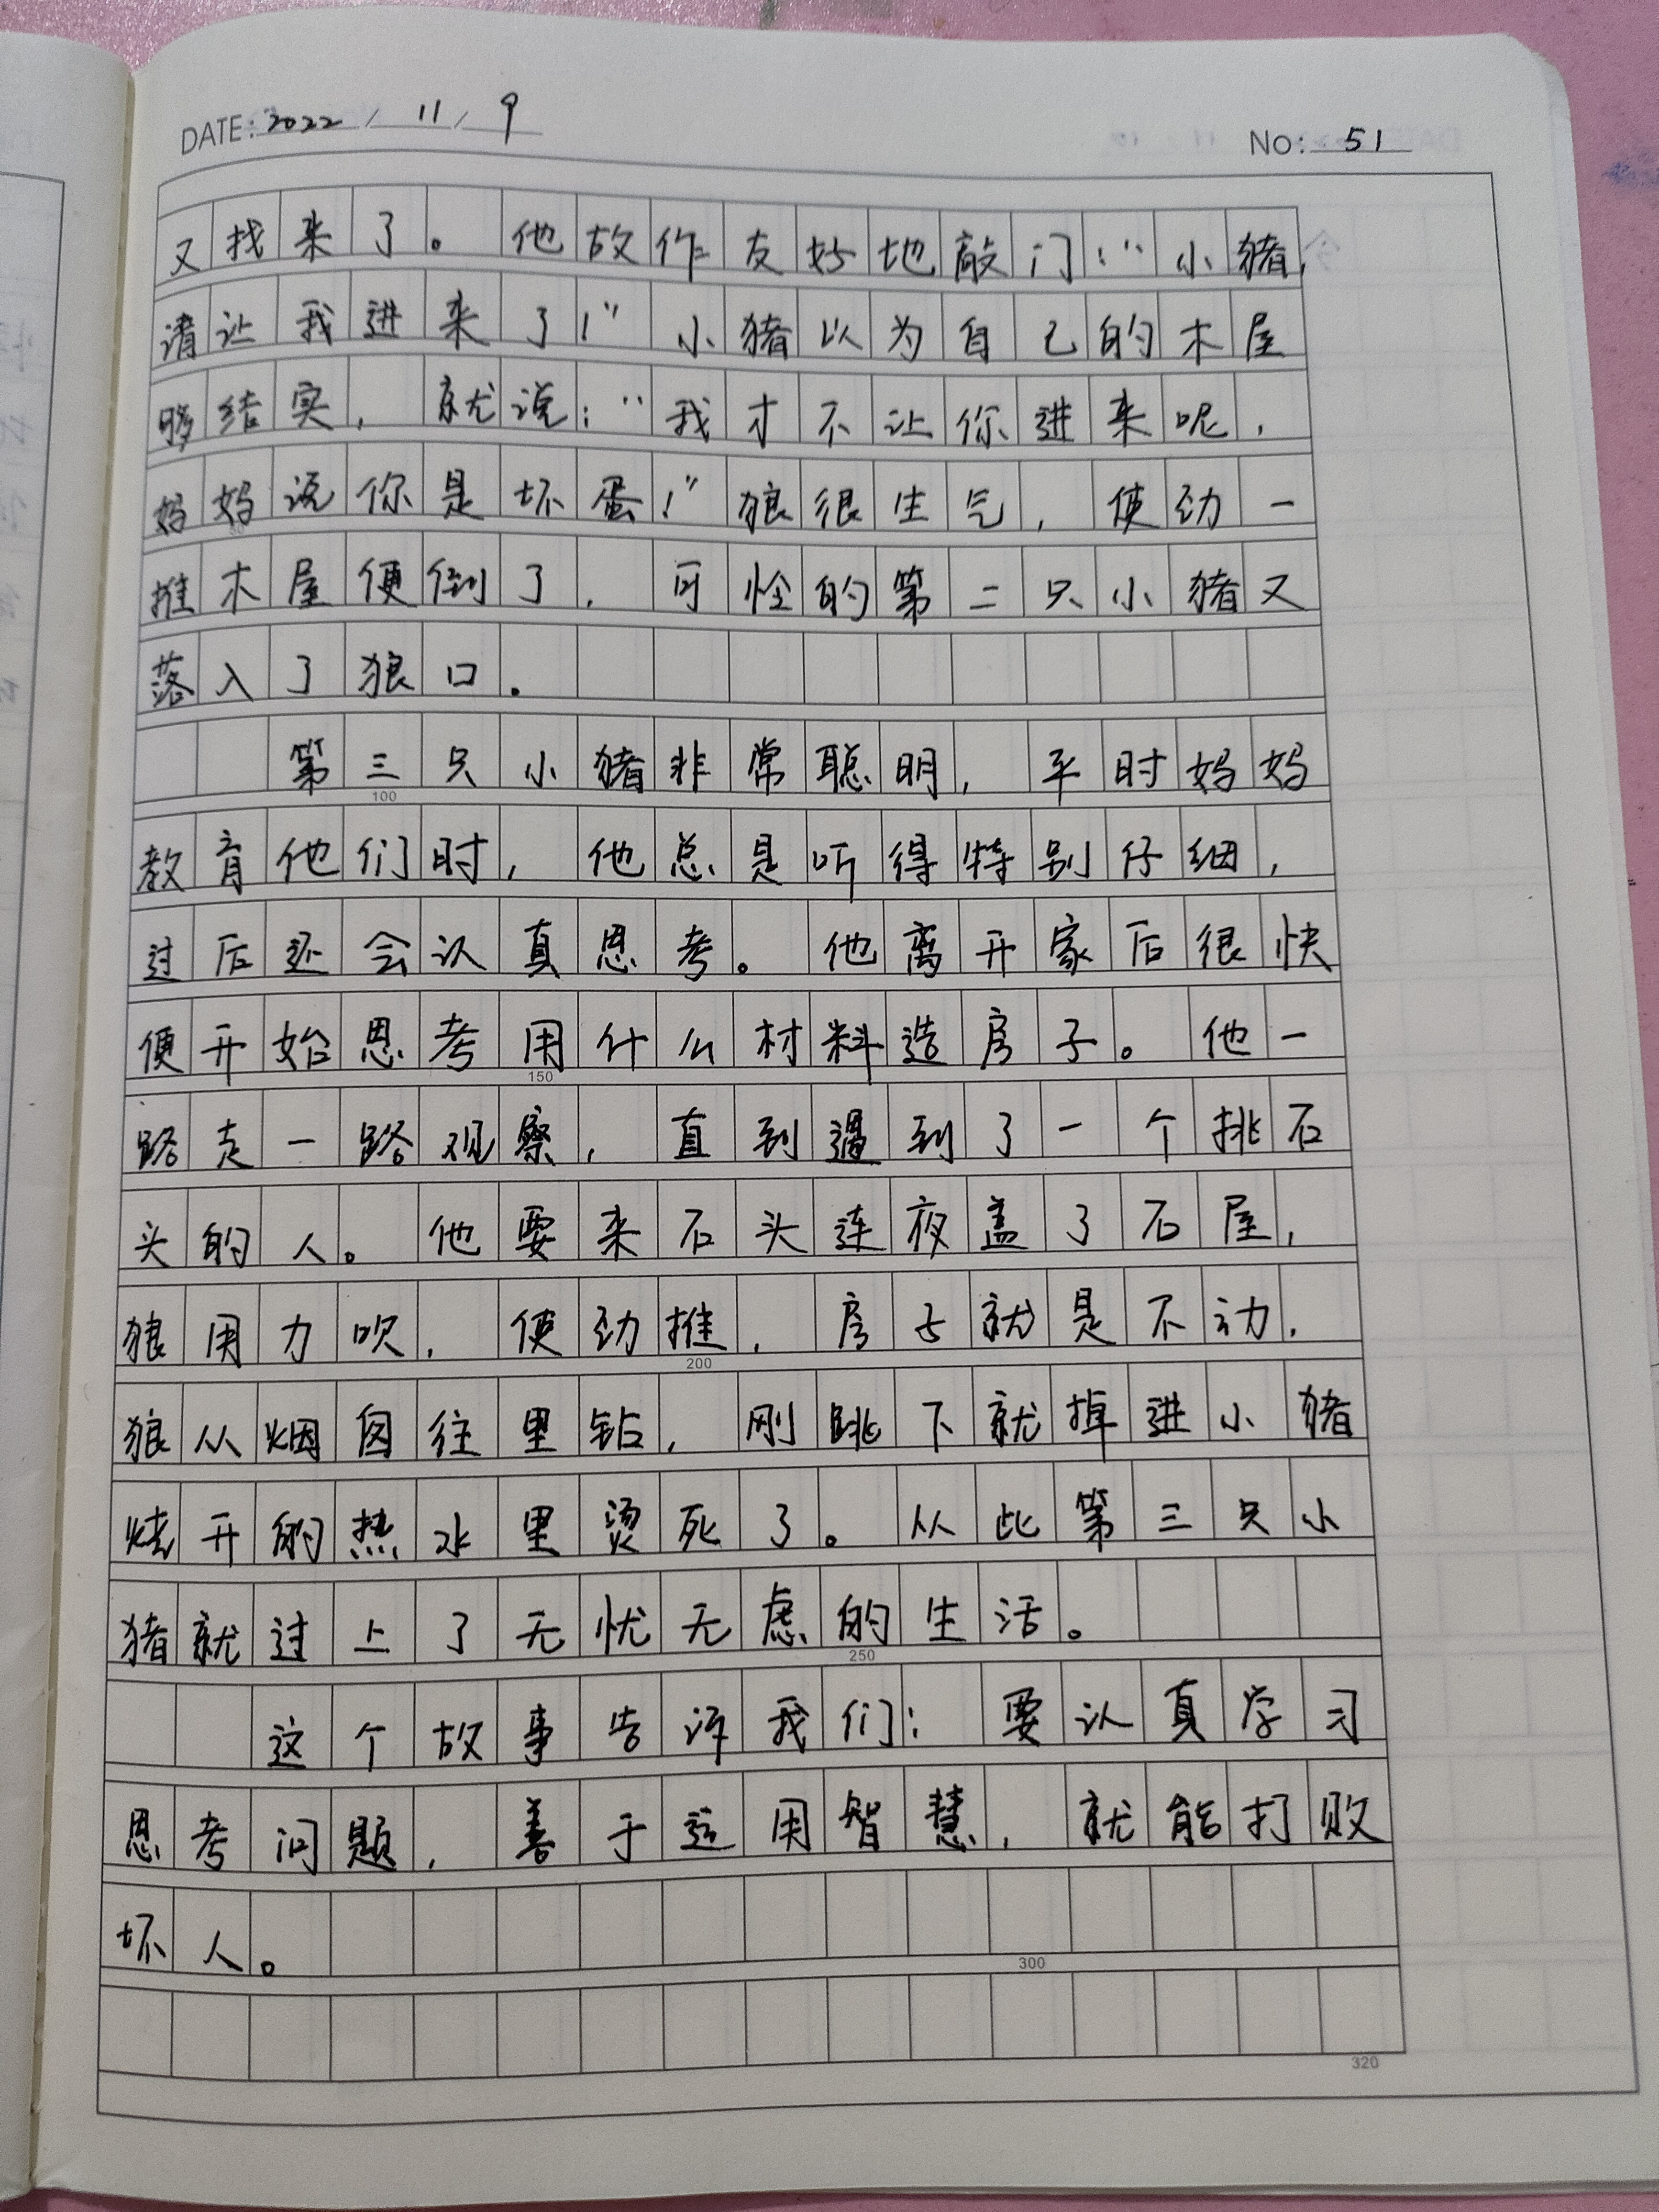 DATE: 2022 / 11 / 9
No: 51
又找来了。他故作友好地敲门：“小猪，
请让我进来了！”小猪以为自己的木屋
够结实，就说：“我才不让你进来呢，
妈妈说你是坏蛋！”狼很生气，使劲一
推木屋便倒了，可怜的第二只小猪又
落入了狼口.
第三只小猪非常聪明，平时妈妈
100
教育他们时，他总是听得特别仔细，
过后还会认真思考。他离开家后很快
便开始思考用什么材料造房子。他一
150
路走一路观察，直到遇到了一个挑石
头的人。他要来石头连夜盖了石屋，
狼用力吹，使劲推，房子就是不动.
200
狼从烟囱往里钻，刚跳下就掉进小猪
烧开的热水里烫死了。从此第三只小
猪就过上了无忧无虑的生活。
250
这个故事告诉我们：要认真学习
思考问题，善于运用智慧，就能打败
坏人。
300
320